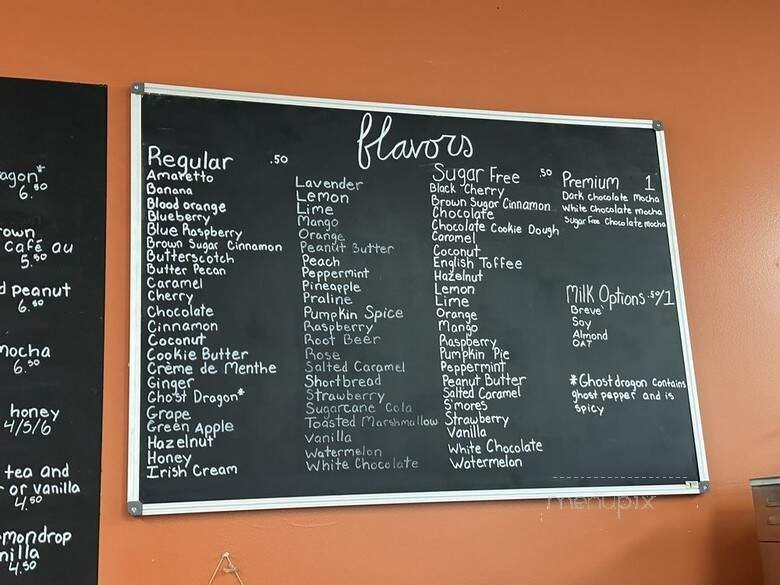 agon*
6.50
own
café au
5.50
d peanut
6.50
mocha
6.50
honey
4/5/6
tea and
or vanilla
4.50
mondrop
nilla
4.50
flavors
Regular .50
Amaretto
Banana
Blood orange
Blueberry
Blue Raspberry
Brown Sugar Cinnamon
Butterscotch
Butter Pecan
Caramel
Cherry
Chocolate
Cinnamon
Coconut
Cookie Butter
Crème de Menthe
Ginger
Ghost Dragon*
Grape
Green Apple
Hazelnut
Honey
Irish Cream
Lavender
Lemon
Lime
Mango
Orange
Peanut Butter
Peach
Peppermint
Pineapple
Praline
Pumpkin Spice
Raspberry
Root Beer
Rose
Salted Caramel
Shortbread
Strawberry
Sugarcane Cola
Toasted Marshmallow
Vanilla
Watermelon
White Chocolate
Sugar Free .50
Black Cherry
Brown Sugar Cinnamon
Chocolate
Chocolate Cookie Dough
Caramel
Coconut
English Toffee
Hazelnut
Lemon
Lime
Orange
Mango
Raspberry
Pumpkin Pie
Peppermint
Peanut Butter
Salted Caramel
S'mores
Strawberry
Vanilla
White Chocolate
Watermelon
Premium 1
Dark chocolate mocha
White Chocolate mocha
Sugar Free Chocolate mocha
Milk Options .50/1
Breve
Soy
Almond
OAT
*Ghost dragon contains
ghost pepper and is
spicy
menupix